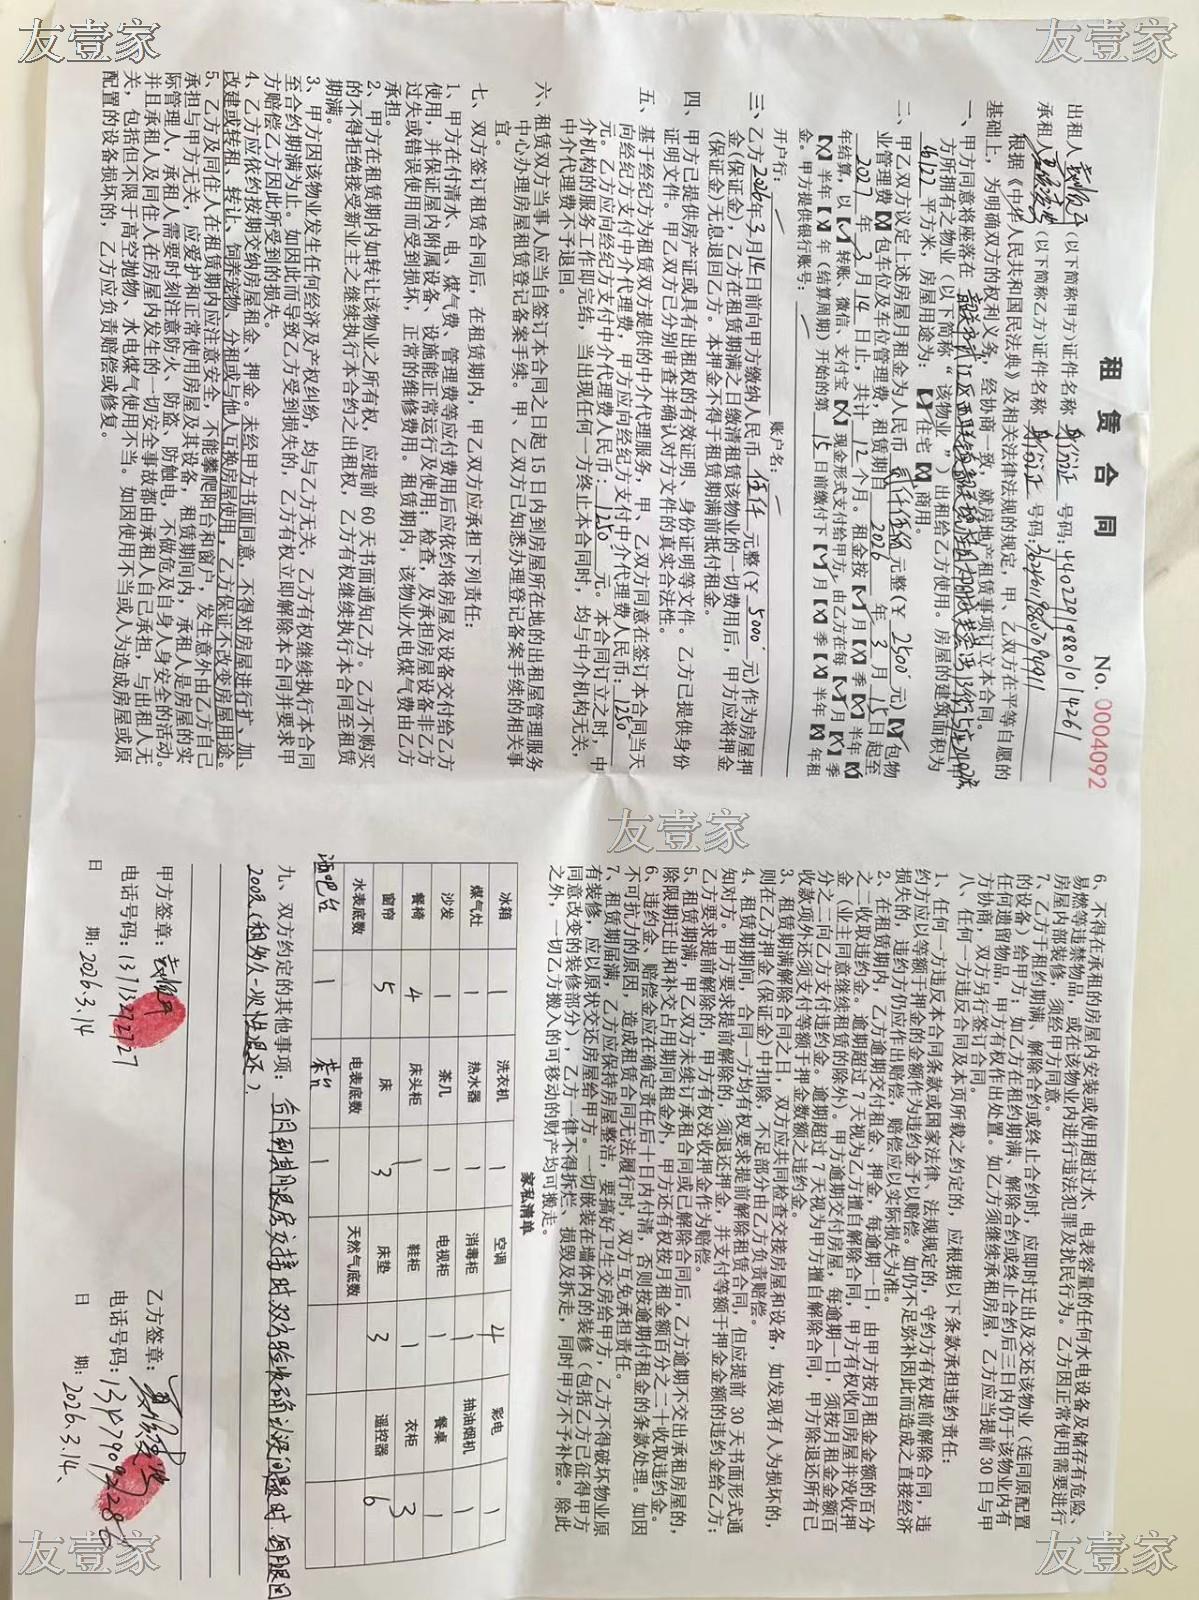 友壹家
友壹家
租赁合同 No. 0004092
出租人 (以下简称甲方)证件名称 身份证 号码: 4402291988101014261
承租人 (以下简称乙方)证件名称 身份证 号码:
根据《中华人民共和国民法典》及相关法律法规的规定,甲、乙双方在平等自愿的
基础上,为明确双方的权利义务,经协商一致,就房地产租赁事项订立本合同。
一、甲方同意将座落在
方所拥有之物业(以下简称“该物业”)出租给乙方使用。房屋的建筑面积为
平方米,房屋用途为:【 】住宅【 】商用。
二、甲乙双方议定上述房屋月租金为人民币 贰仟伍佰 元整(¥ 2500 元)【 】包物
业管理费【 】包车位及车位管理费,租赁期自 2026 年 3 月 15 日起至
2027 年 3 月 14 日止,共计 12 个月。租金按【 】月【 】季【 】半年【 】
年结算,以【 】转账、微信、支付宝【 】现金形式支付给甲方,由乙方在每【 】月【 】季
【 】半年【 】年(结算周期)开始的第 15 日前缴付下【 】月【 】季【 】半年【 】年租
金。甲方提供银行账号:
开户行: 账户名:
三、乙方 2026 年 3 月 14 日前向甲方缴纳人民币 伍仟 元整(¥ 5000 元)作为房屋押
金(保证金),乙方在租赁期满之日缴清租赁该物业的一切费用后,甲方应将押金
(保证金)无息退回乙方。本押金不得于租赁期满前抵付租金。
四、甲方已提供房产证或具有出租权的有效证明、身份证明等文件。乙方已提供身份
证明文件。甲乙双方已分别审查并确认对方文件的真实合法性。
五、基于经纪方为租赁双方提供的中介代理服务,甲、乙双方同意在签订本合同当天
向经纪方支付中介代理费,甲方应向经纪方支付中介代理费人民币: 1250
元。乙方应向经纪方支付中介代理费人民币: 1250 元。本合同订立之时,中
介机构的服务工作即完结,当出现任何一方终止本合同时,均与中介机构无关,
中介代理费不予退回。
六、租赁双方当事人应当自签订本合同之日起 15 日内到房屋所在地的出租屋管理服务
中心办理房屋租赁登记备案手续。甲、乙双方已知悉办理登记备案手续的相关事
宜。
七、双方签订租赁合同后,在租赁期内,甲乙双方应承担下列责任:
1、甲方在付清水、电、煤气费、管理费等应付费用后应依约将房屋及设备交付给乙方
使用,并保证屋内附属设备、设施能正常运行及使用;检查,及承担房屋设备非乙方
过失或错误使用而受到损坏,正常的维修费用。租赁期内,该物业水电煤气费由乙方
承担。
2、甲方在租赁期内如转让该物业之所有权,应提前 60 天书面通知乙方。乙方不购买
的不得拒绝接受新业主之继续执行本合约之出租权,乙方有权继续执行本合同至租赁
期满。
3、甲方因该物业发生任何经济及产权纠纷,均与乙方无关,乙方有权继续执行本合同
至合约期满为止。如因此而导致乙方受到损失的,乙方有权立即解除本合同并要求甲
方赔偿乙方因此所受到的损失。
4、乙方应依约按期交纳房屋租金、押金。未经甲方书面同意,不得对房屋进行扩、加、
改建或转租、转让、饲养宠物、分租或与他人互换房屋使用,乙方保证不改变房屋用途。
5、乙方及同住人在租赁期内应注意安全,不能攀爬阳台和窗户,发生意外由乙方自己
承担与甲方无关,应爱护和正常使用房屋及其设备,租赁期间内,承租人是房屋的实
际管理人,承租人需要时刻注意防火、防盗、防触电,不做危及自身人身安全的活动。
并且承租人及同住人在房屋内发生的一切安全事故都由承租人自己承担,与出租人无
关,包括但不限于高空抛物、水电煤气使用不当。如因使用不当或人为造成房屋或原
配置的设备损坏的,乙方应负责赔偿或修复。
友壹家
6、不得在承租的房屋内安装或使用超过水、电表容量的任何水电设备及储存有危险、
易燃等违禁物品,或在该物业内进行违法犯罪及扰民行为。乙方因正常使用需要进行
房屋内部装修,须经甲方同意。
7、乙方于租约期满、解除合约或终止合约时,应即时迁出及交还该物业(连同原配置
的设备)给甲方;如乙方在租约期满、解除合约或终止合约后三日内仍于该物业内有
任何遗留物品,甲方有权作出处置。如乙方须继续承租房屋,乙方应当提前 30 日与甲
方协商,双方另行签订合同。
八、任何一方违反合同及本页所载之约定的,应根据以下条款承担违约责任:
1、任何一方违反本合同条款或国家法律、法规规定的,守约方有权提前解除合同,违
约方应以等额于押金的金额作为违约金予以赔偿。如仍不足弥补因此而造成之直接经济
损失的,违约方仍应作出赔偿,赔偿应以实际损失为准。
2、在租赁期内,乙方逾期交付租金、押金,每逾期一日,由甲方按月租金金额的百分
之二收取违约金。逾期超过 7 天视为乙方擅自解除合同,甲方有权收回房屋并没收押
金(业主同意继续租赁的除外)。甲方逾期交付房屋,每逾期一日,须按月租金金额百
分之二向乙方支付违约金。逾期超过 7 天视为甲方擅自解除合同,甲方除退还所有已
收款项外还须支付等额于押金数额之违约金。
3、租赁期满解除合同之日,双方应共同检查交接房屋和设备,如发现有人为损坏的,
则在乙方押金(保证金)中扣除,不足部分由乙方负责赔偿。
4、租赁期期间,合同一方均有权要求提前解除租赁合同,但应提前 30 天书面形式通
知对方。甲方要求提前解除的,须退还押金,并支付等额于押金金额的违约金给乙方;
乙方要求提前解除的,甲方有权没收押金作为赔偿。
5、租赁期满,甲乙双方未续订承租合同或已解除合同后,乙方逾期不交出承租房屋的,
除限期迁出和补交占用期间租金外,甲方还有权按月租金额百分之二十收取违约金。
6、违约金、赔偿金应在确定责任后十日内付清,否则按逾期付租金的条款处理。如因
不可抗力的原因,造成租赁合同无法履行时,双方互免承担责任。
7、租赁期届满,乙方应保持房屋整洁,要搞好卫生交房给甲方,乙方不得破坏物业原
有装修,应以原状交还房屋给甲方。一切嵌装在墙体内的装修(包括乙方已征得甲方
同意改变的装修部分),乙方一律不得拆烂、损毁及拆走,同时甲方不予补偿。除此
之外,一切乙方搬入的可移动的财产均可搬走。
家私清单
冰箱 1 洗衣机 1 空调 4 彩电 1
煤气灶 1 热水器 1 消毒柜 1 抽油烟机 1
沙发 1 茶几 1 电视柜 1 餐桌 1
餐椅 4 床头柜 1 鞋柜 1 衣柜 3
窗帘 5 床 3 床垫 3 遥控器 6
水表底数 电表底数 天然气底数
酒吧台 1
九、双方约定的其他事项: 合同到期退房交接时双方验收确认没问题时,
甲方签章: 乙方签章:
电话号码: 13713372727 电话号码:
日 期: 2026.3.14 日 期: 2026.3.14
友壹家
友壹家